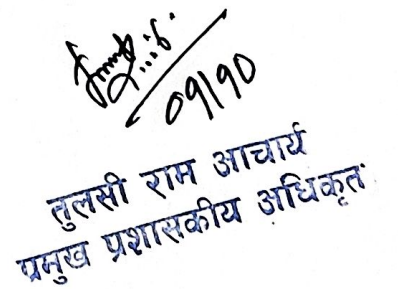 ०९।१०
तुलसी राम आचार्य
प्रमुख प्रशासकीय अधिकृत